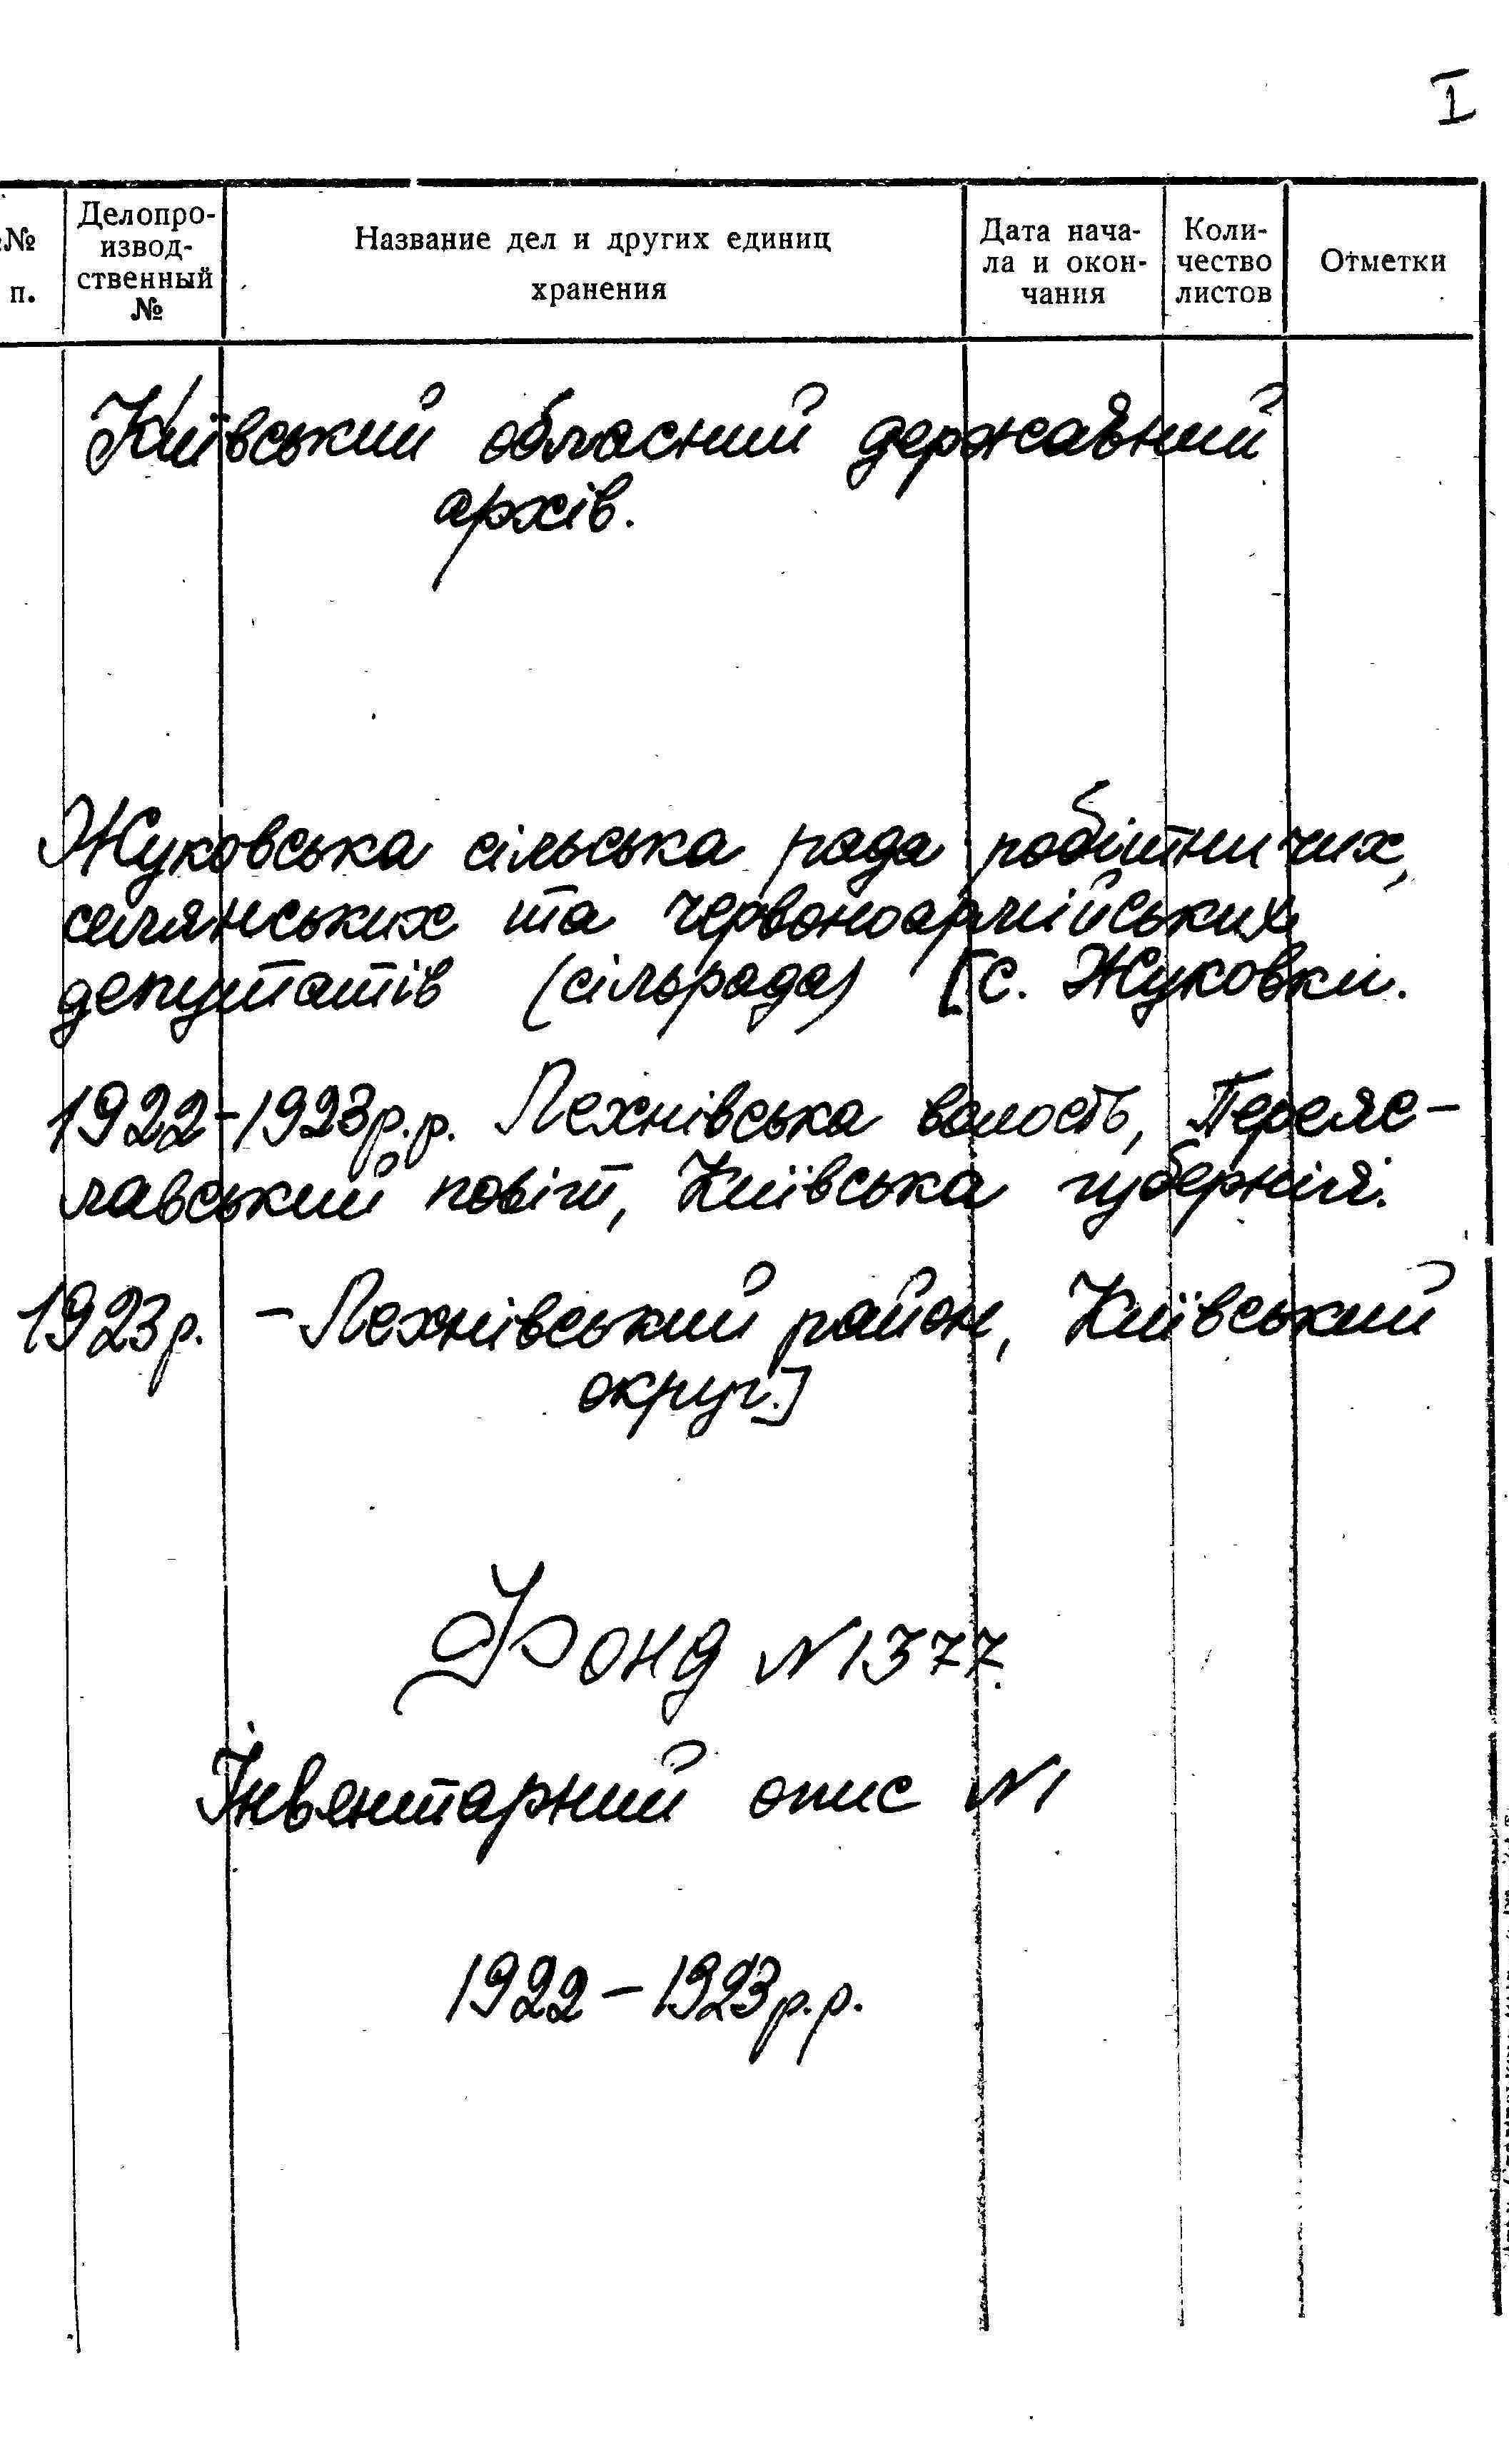 I
№ Делопро- Название дел и других единиц Дата нача- Коли- Отметки
извод- ла и окон- чество
п. ственный хранения чания листов
№
Київський обласний державний
архів.
Жуковська сільська рада робітничих,
селянських та червоноармійських
депутатів (сільрада) [с. Жуковки.
1922-1923р.р. Лехнівська волость, Переяс-
лавський повіт, Київська губернія.
1923р. - Лехнівський район, Київський
округ.]
Фонд №1377.
Інвентарний опис №1
1922-1923р.р.